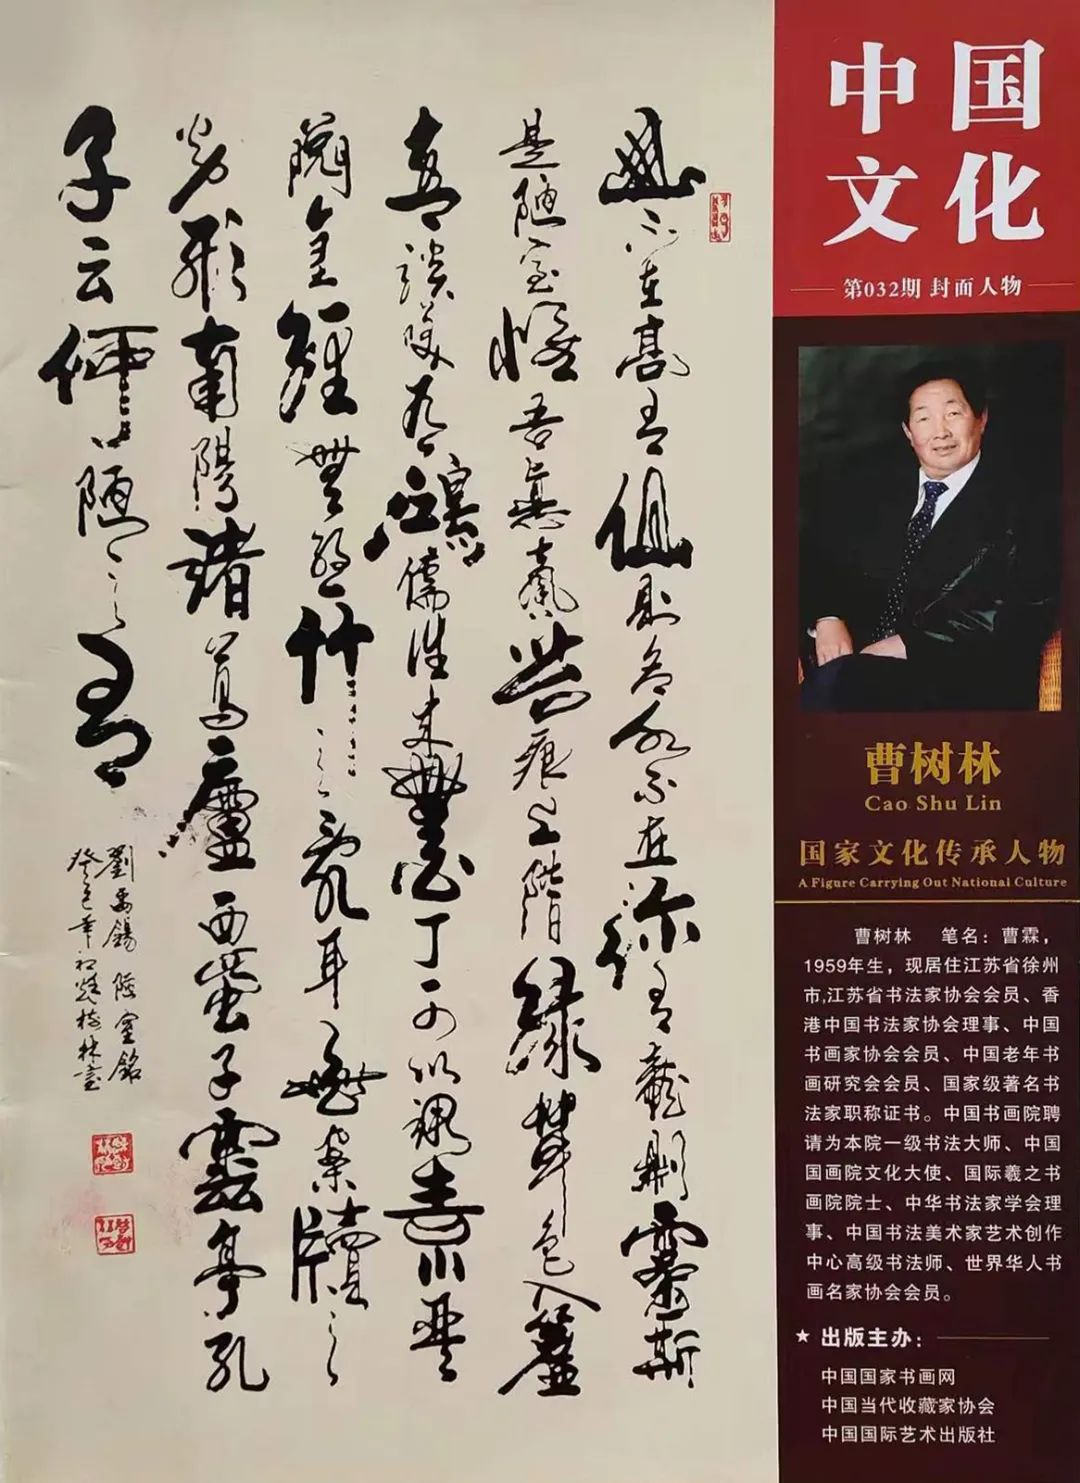 中国
文化
第032期 封面人物
曹树林
Cao Shu Lin
国家文化传承人物
A Figure Carrying Out National Culture
曹树林 笔名：曹霖，
1959年生，现居住江苏省徐州
市,江苏省书法家协会会员、香
港中国书法家协会理事、中国
书画家协会会员、中国老年书
画研究会会员、国家级著名书
法家职称证书。中国书画院聘
请为本院一级书法大师、中国
国画院文化大使、国际羲之书
画院院士、中华书法家学会理
事、中国书法美术家艺术创作
中心高级书法师、世界华人书
画名家协会会员。
★ 出版主办：
中国国家书画网
中国当代收藏家协会
中国国际艺术出版社
不在高有仙則名水不在深有龍則靈斯
是陋室惟吾德馨苔痕上階綠草色入簾
青談笑有鴻儒往來無白丁可以調素琴
閱金經無絲竹之亂耳無案牘之
勞形南陽諸葛廬西蜀子雲亭孔
子云何陋之有
劉禹錫 陋室銘
癸巳年初秋樹林書